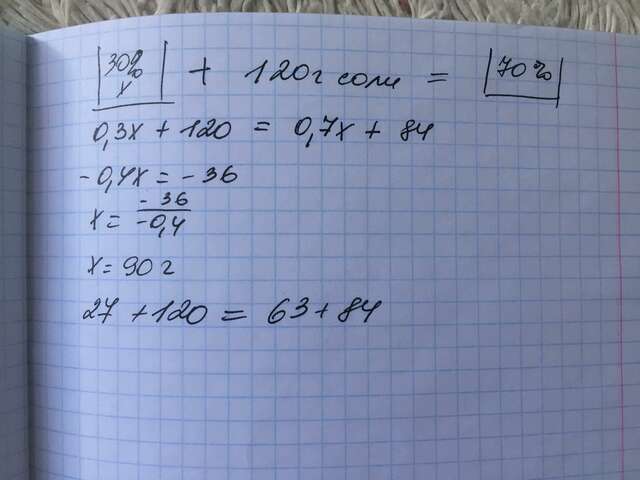 30% x + 120г соли = 70%
0,3x + 120 = 0,7x + 84
-0,4x = -36
x = -36/-0,4
x = 90 г
27 + 120 = 63 + 84